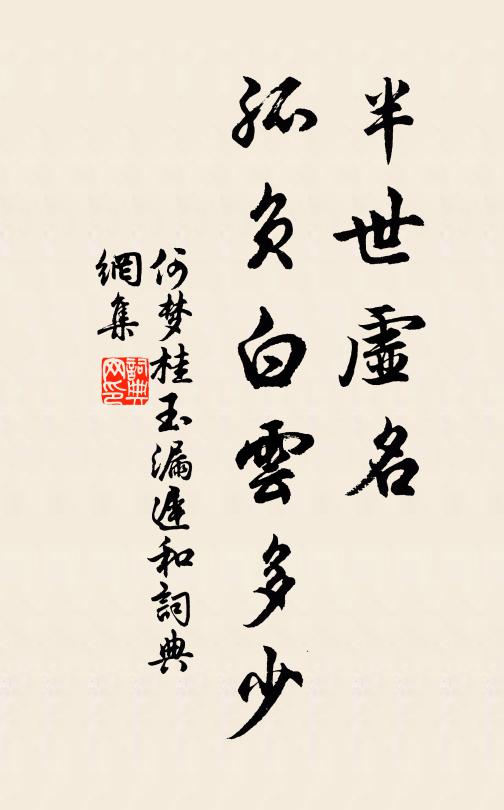 半世虛名
孤负白雲多少
何梦桂玉漏遲和詞典
網集
詞典网印